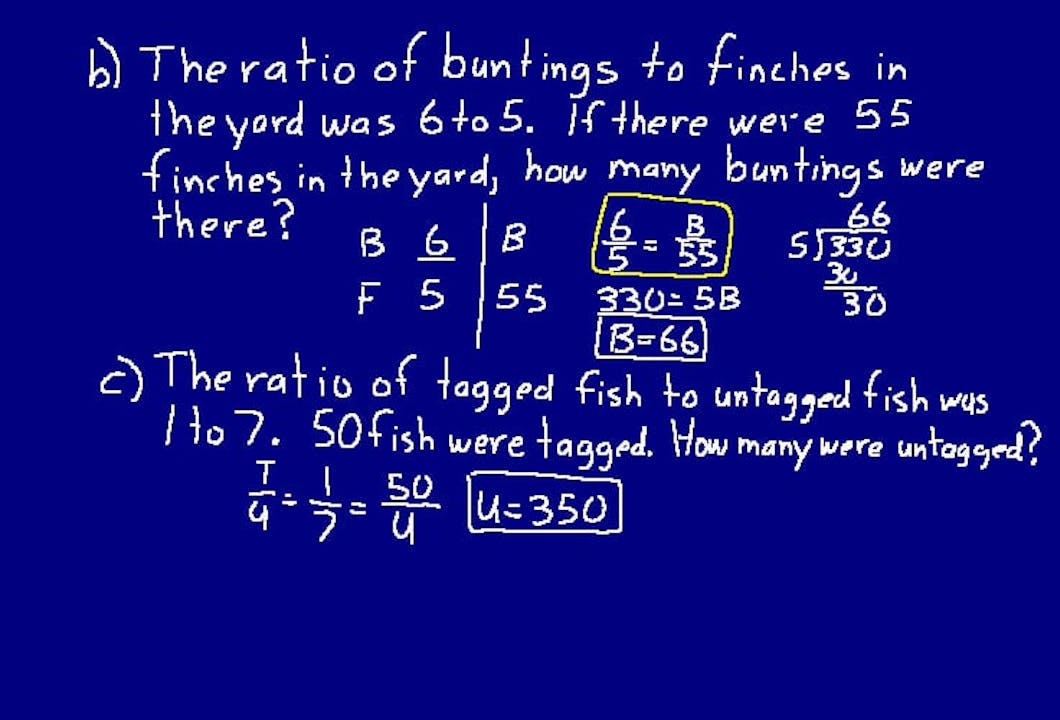 b) The ratio of buntings to finches in
the yard was 6 to 5. If there were 55
finches in the yard, how many buntings were
there?
B 6 B
F 5 55
6/5 = B/55
330 = 5B
B = 66
66
5)330
30
30
c) The ratio of tagged fish to untagged fish was
1 to 7. 50 fish were tagged. How many were untagged?
T/u = 1/7 = 50/u u = 350